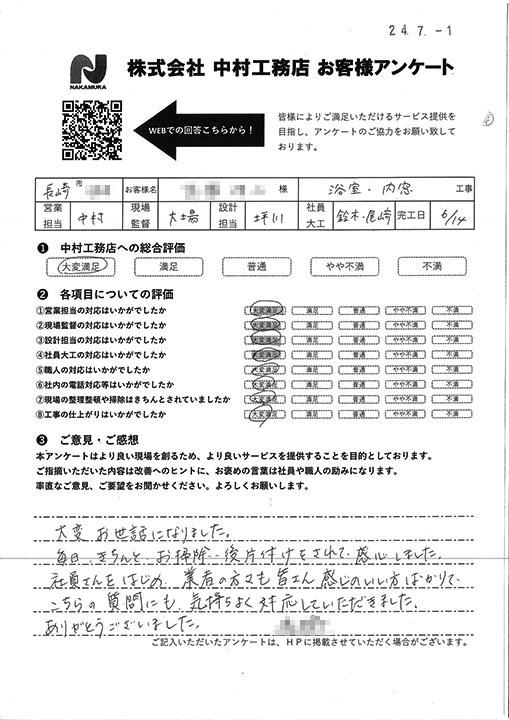 24.7.-1
NAKAMURA
株式会社 中村工務店 お客様アンケート
WEBでの回答こちらから！
皆様によりご満足いただけるサービス提供を
目指し、アンケートのご協力をお願い致して
おります。
長崎 市 お客様名 様 浴室・内窓 工事
営業担当 中村 現場監督 大場 設計担当 坪川 社員大工 鈴木・尾崎 完工日 6/14
❶ 中村工務店への総合評価
大変満足 満足 普通 やや不満 不満
❷ 各項目についての評価
①営業担当の対応はいかがでしたか 大変満足 満足 普通 やや不満 不満
②現場監督の対応はいかがでしたか 大変満足 満足 普通 やや不満 不満
③設計担当の対応はいかがでしたか 大変満足 満足 普通 やや不満 不満
④社員大工の対応はいかがでしたか 大変満足 満足 普通 やや不満 不満
⑤職人の対応はいかがでしたか 大変満足 満足 普通 やや不満 不満
⑥社内の電話対応等はいかがでしたか 大変満足 満足 普通 やや不満 不満
⑦現場の整理整頓や掃除はきちんとされていましたか 大変満足 満足 普通 やや不満 不満
⑧工事の仕上がりはいかがでしたか 大変満足 満足 普通 やや不満 不満
❸ ご意見・ご感想
本アンケートはより良い現場を創るため、より良いサービスを提供することを目的としております。
ご指摘いただいた内容は改善へのヒントに、お褒めの言葉は社員や職人の励みになります。
率直なご意見、ご要望をお聞かせください。よろしくお願いします。
大変お世話になりました。
毎日、きちんと、お掃除、後片付けをされて、感心しました。
社員さんをはじめ、業者の方々も皆さん感じのいい方ばかりで、
こちらの質問にも、気持ちよく対応していただきました。
ありがとうございました。
ご記入いただいたアンケートは、HPに掲載させていただく場合がございます。